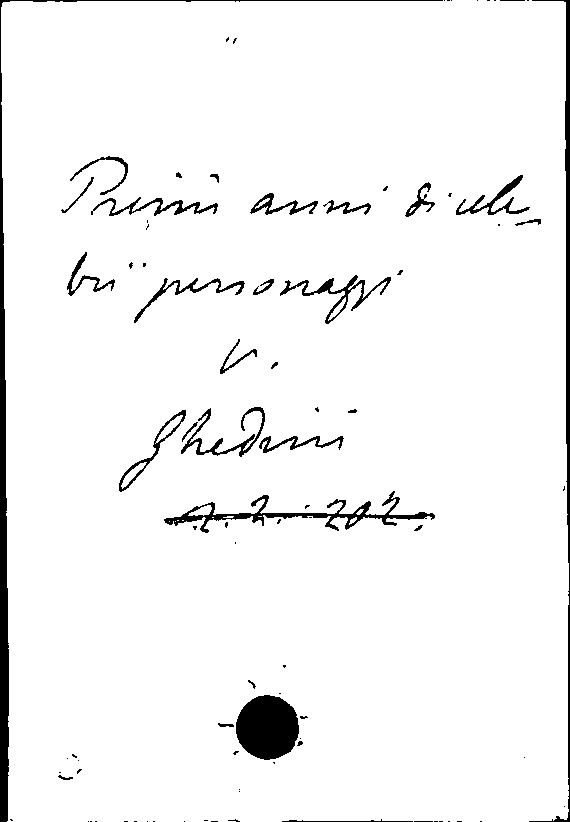 Primi anni di cele-
brii personaggi
v.
Ghedini